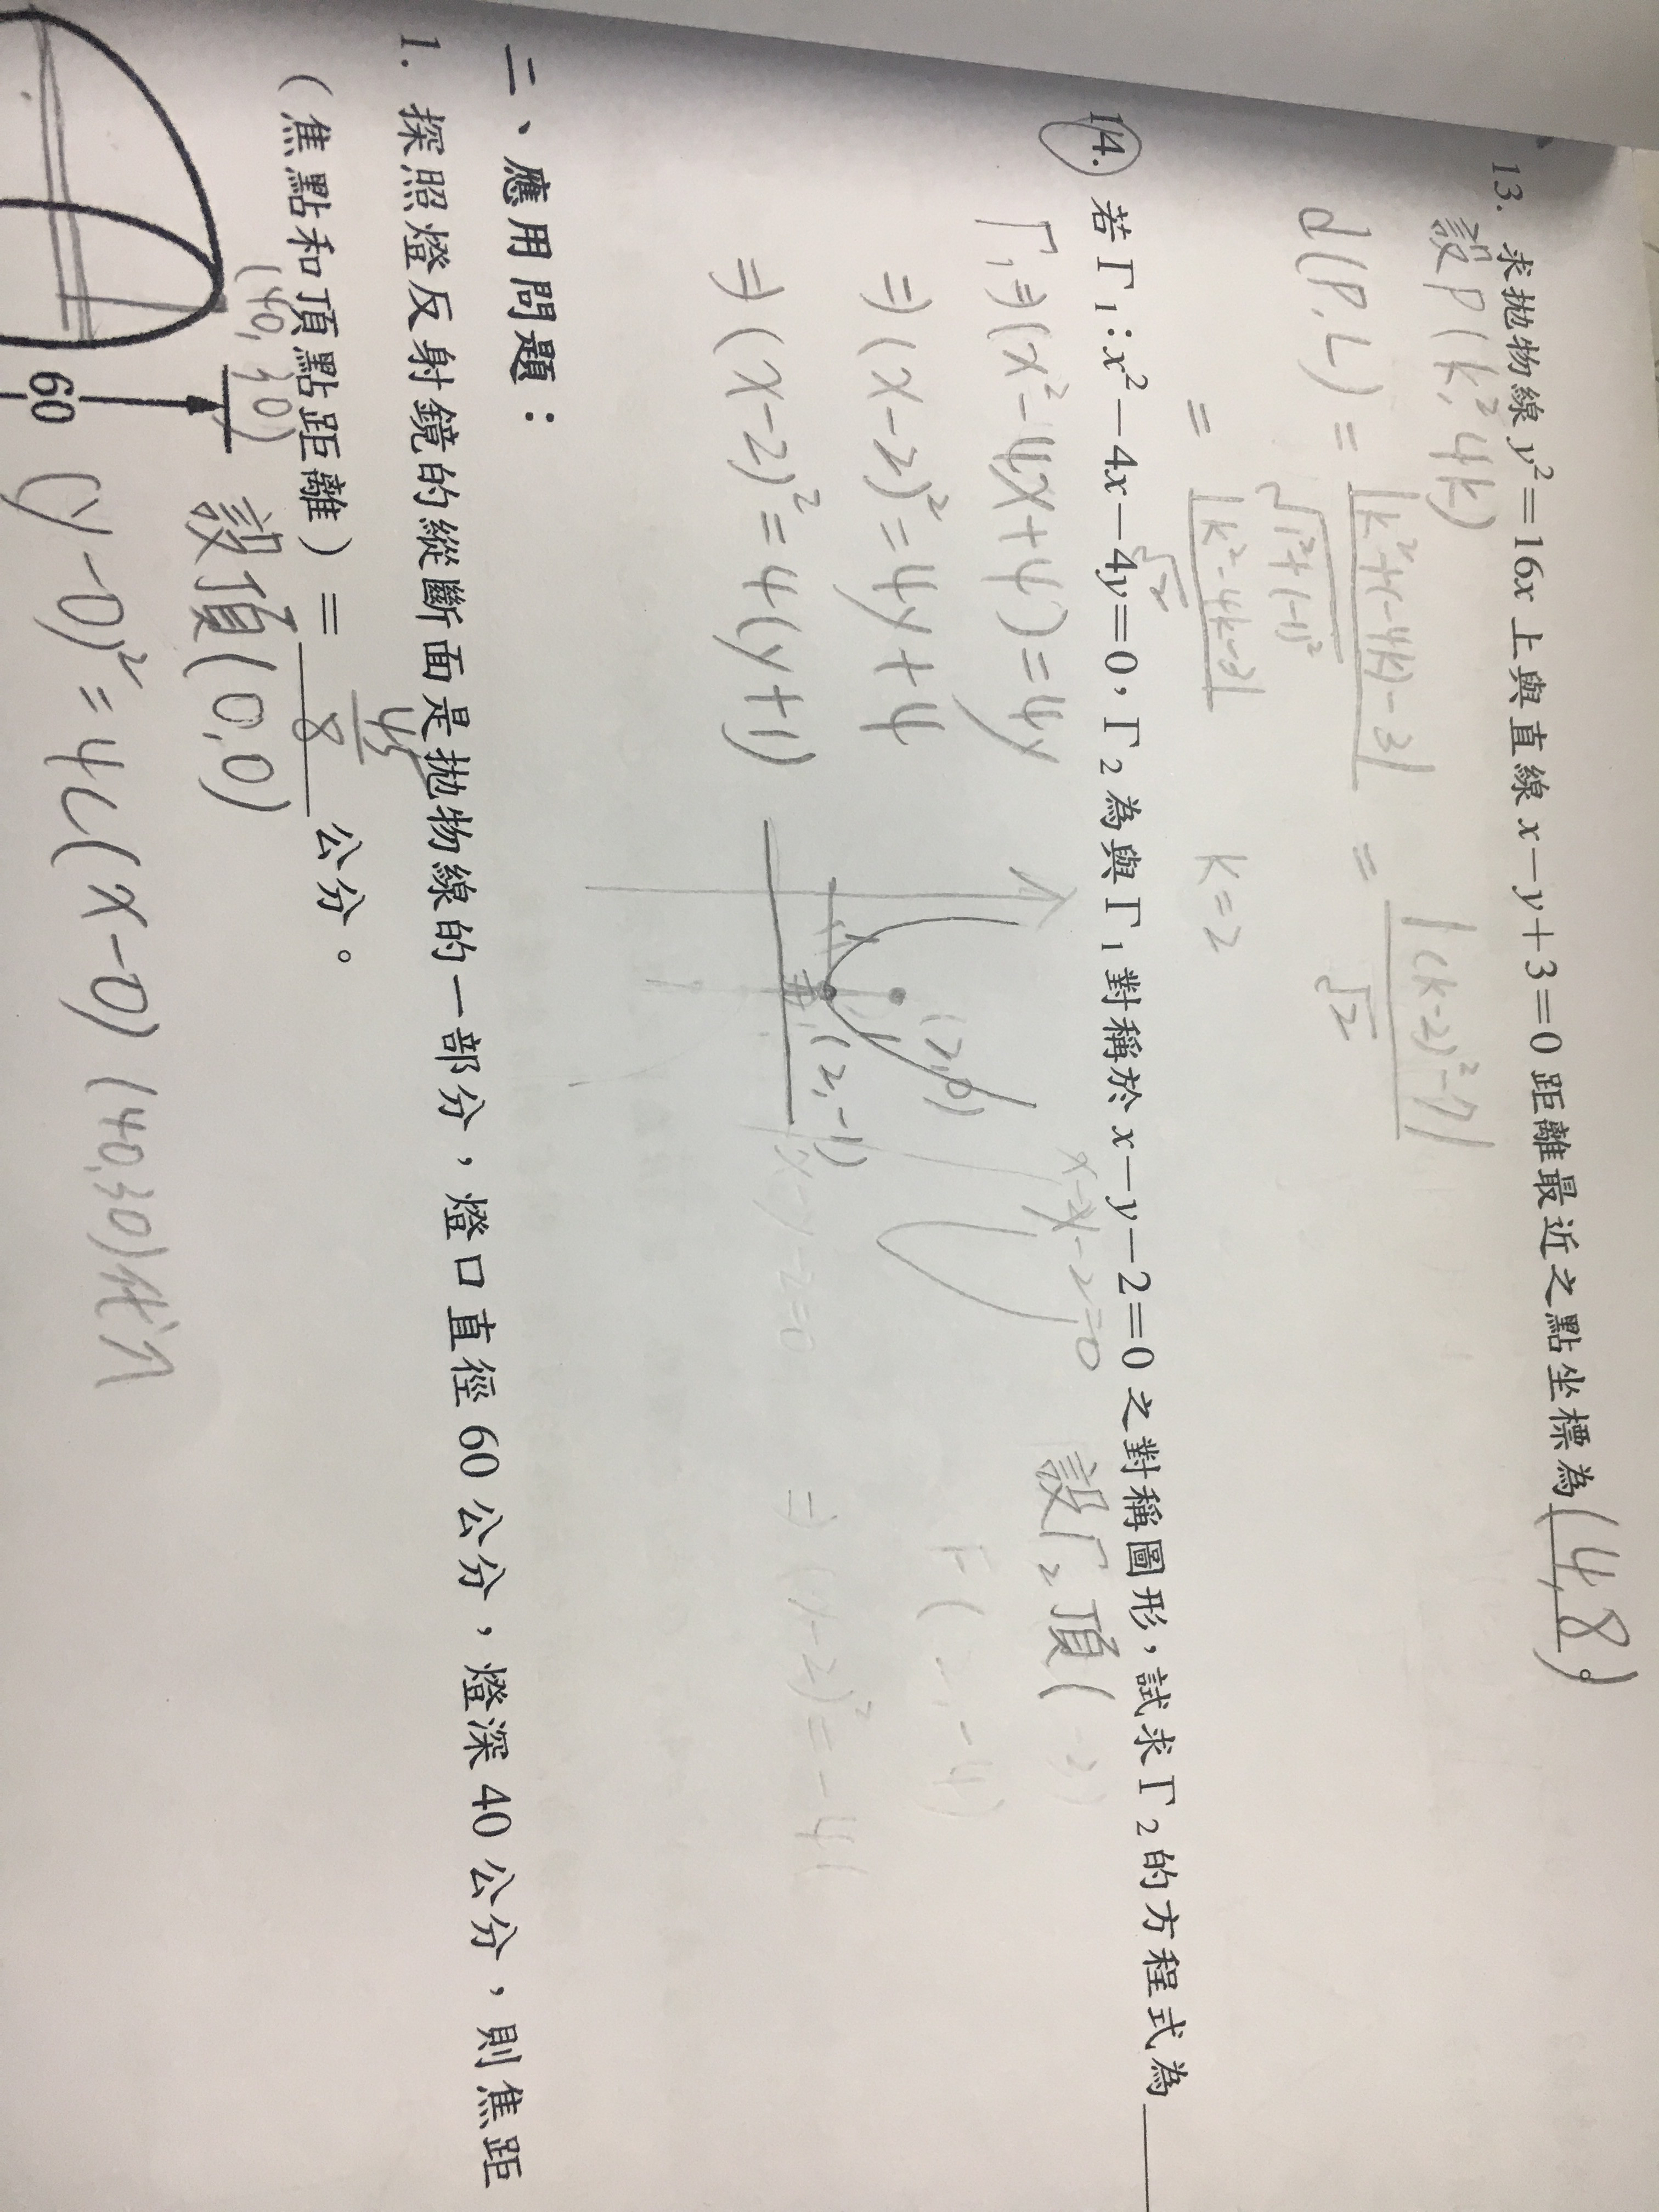 13. 求拋物線 y²=16x 上與直線 x-y+3=0 距離最近之點坐標為(4,8)。
設P(k²,4k)
d(P,L) = |k²+(-4k)-3| / √1²+(-1)² = |(k-2)²-7| / √2
= |k²-4k-3| / √2 k=2
14. 若 Γ₁:x²-4x-4y=0,Γ₂ 為與 Γ₁ 對稱於 x-y-2=0 之對稱圖形,試求 Γ₂ 的方程式為
Γ₁⇒(x²-4x+4)=4y
⇒(x-2)²=4y+4
⇒(x-2)²=4(y+1)
(2,0)
(2,-1)
x-y-2=0
設Γ₂頂(
x-y-2=0
⇒(x-2)²=-4(
二、應用問題:
1. 探照燈反射鏡的縱斷面是拋物線的一部分,燈口直徑 60 公分,燈深 40 公分,則焦距
(焦點和頂點距離)= 45/8 公分。
(40,30)
設頂(0,0)
60
(y-0)²=4c(x-0) (40,30)代入